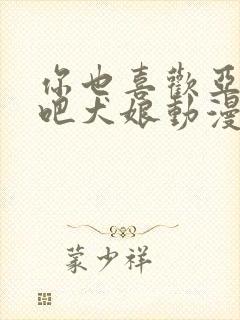 你也喜歡亞
吧犬娘動漫
蒙少祥